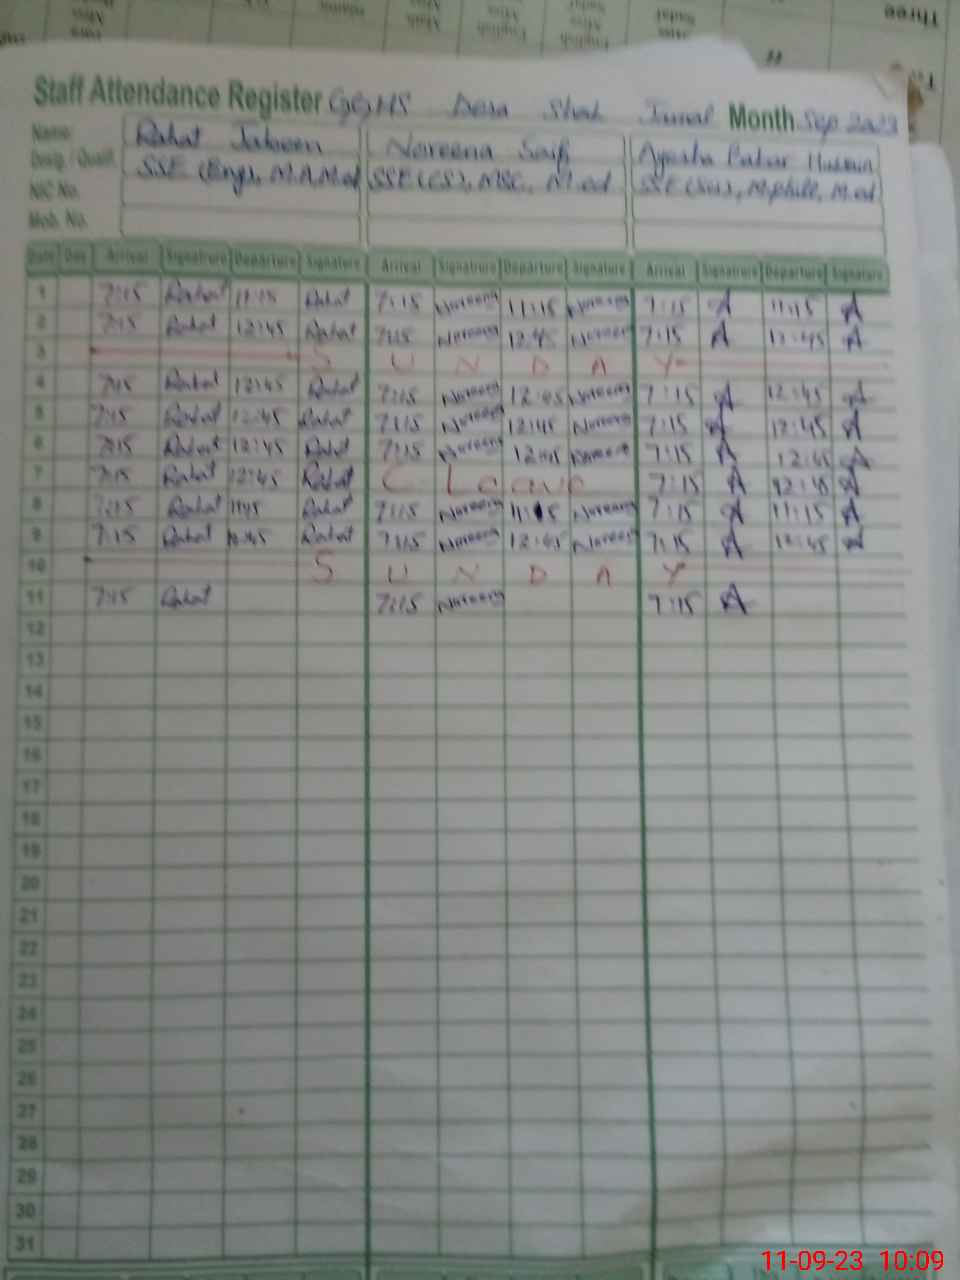 Three
Staff Attendance Register GGHS Dera Shah Jamal Month Sep 2023
Name Rahat Jabeen Noreena Saif Ayesha Bahar Hussain
Desig / Qualif. SSE (Eng), M.A, M.ed SSE (CS), MSC, M.ed SSE (Sci), M.phill, M.ed
NIC No.
Mob. No.
Date Day Arrival Signatrure Departure Signature Arrival Signatrure Departure Signature Arrival Signatrure Departure Signature
1 7:15 Rahat 11:15 Rahat 7:15 Noreena 11:15 Noreena 7:15 A 11:15 A
2 7:15 Rahat 12:45 Rahat 7:15 Noreena 12:45 Noreena 7:15 A 12:45 A
3 S U N D A Y
4 7:15 Rahat 12:45 Rahat 7:15 Noreena 12:45 Noreena 7:15 A 12:45 A
5 7:15 Rahat 12:45 Rahat 7:15 Noreena 12:45 Noreena 7:15 A 12:45 A
6 7:15 Rahat 12:45 Rahat 7:15 Noreena 12:45 Noreena 7:15 A 12:45 A
7 7:15 Rahat 12:45 Rahat C Leave 7:15 A 12:45 A
8 7:15 Rahat 1115 Rahat 7:15 Noreena 11:15 Noreena 7:15 A 11:15 A
9 7:15 Rahat 12:45 Rahat 7:15 Noreena 12:45 Noreena 7:15 A 12:45 A
10 S U N D A Y
11 7:15 Rahat 7:15 Noreena 7:15 A
12
13
14
15
16
17
18
19
20
21
22
23
24
25
26
27
28
29
30
31
11-09-23 10:09